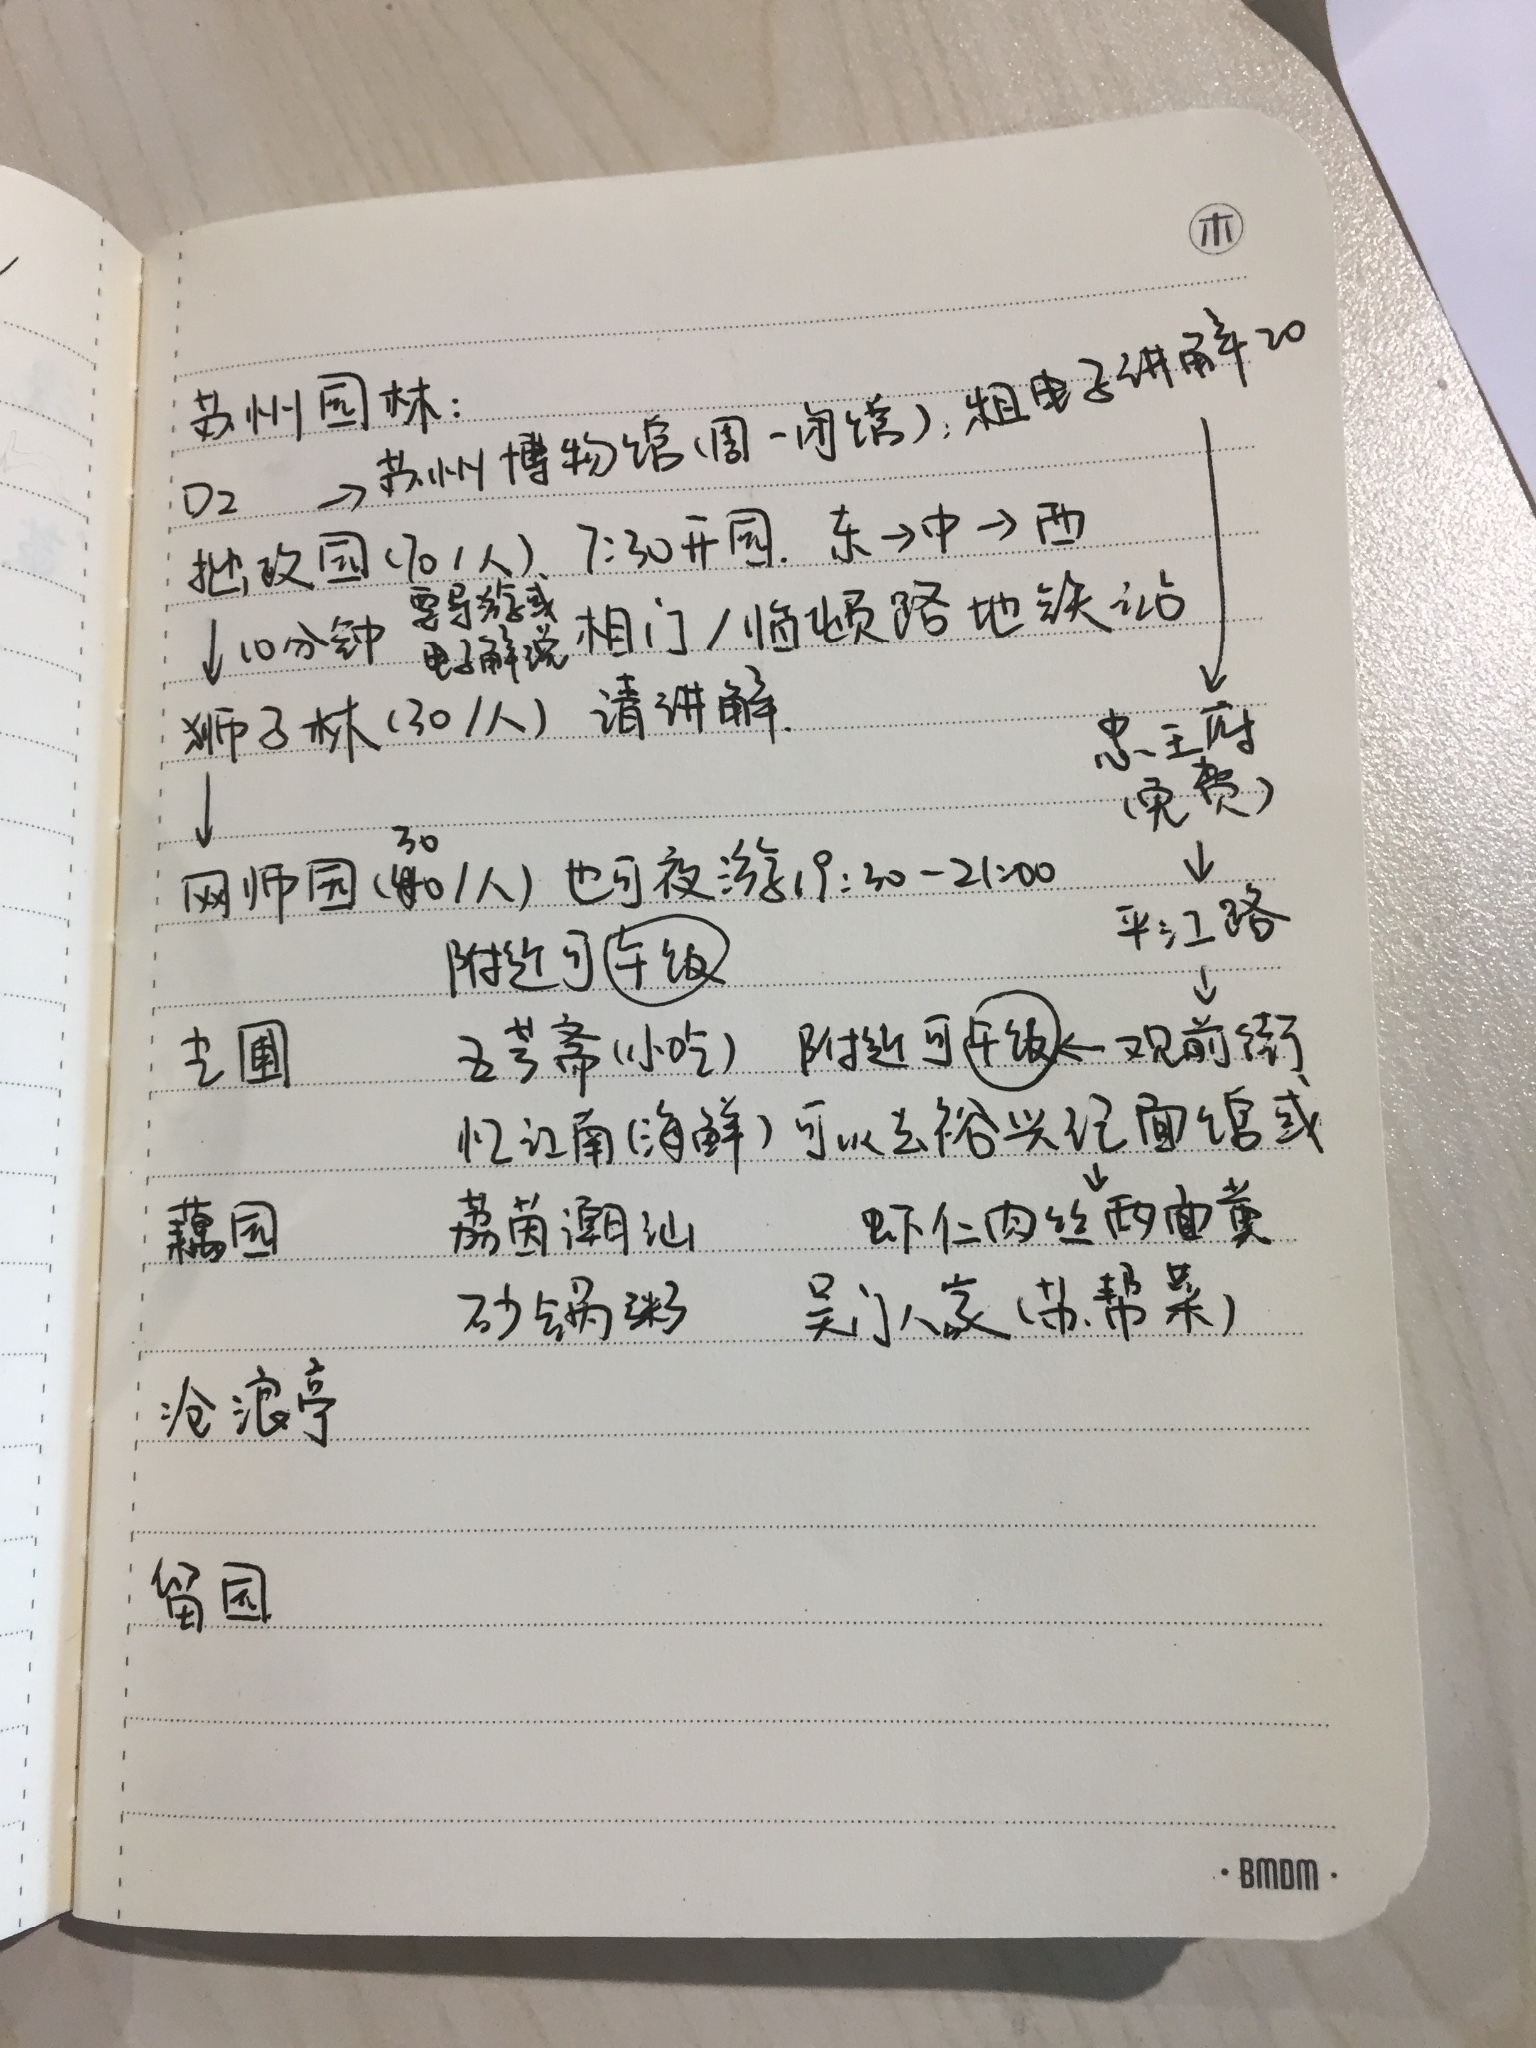 木
苏州园林:
D2 →苏州博物馆(周一闭馆);租电子讲解20
拙政园(70/人)、7:30开园. 东→中→西
↓10分钟 要导游或 相门/临顿路地铁站
电子解说
狮子林(30/人) 请讲解.
↓
忠王府
(免费)
↓
30
网师园(/人) 也可夜游19:30-21:00
平江路
↓
附近可午饭
五芳斋(小吃) 附近可午饭←观前街
忆江南(海鲜) 可以去裕兴记面馆或
↓
藕园 荔茵潮汕 虾仁肉丝两面黄
砂锅粥 吴门人家(苏帮菜)
沧浪亭
留园
·BMDM·